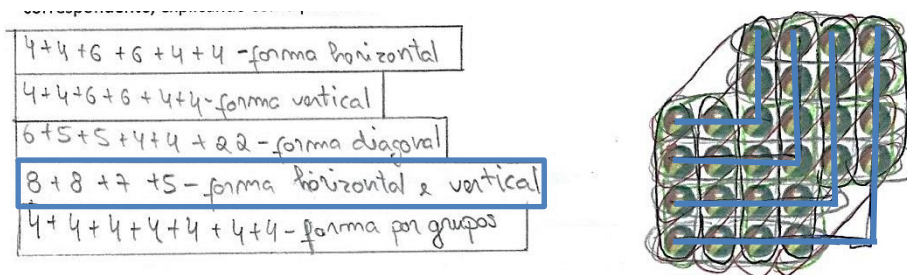 4+4+6+6+4+4 - forma horizontal
4+4+6+6+4+4 - forma vertical
6+5+5+4+4+22 - forma diagonal
8+8+7+5 - forma horizontal e vertical
4+4+4+4+4+4+4 - forma por grupos